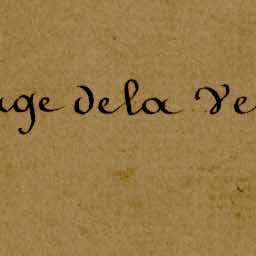 age dela Ve